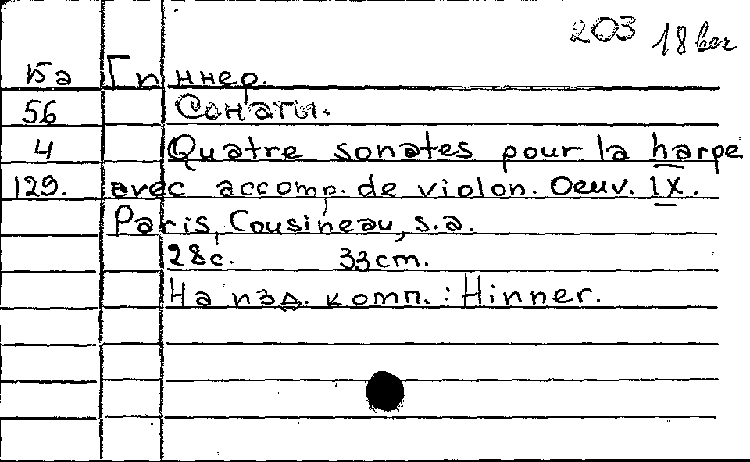 203 18 век
15а Гиннер.
56 Сонаты.
4 Quatre sonates pour la harpe
129. avec accomp. de violon. Oeuv. IX.
Paris, Cousineau, s.a.
28с. 33cm.
На изд. комп.: Hinner.